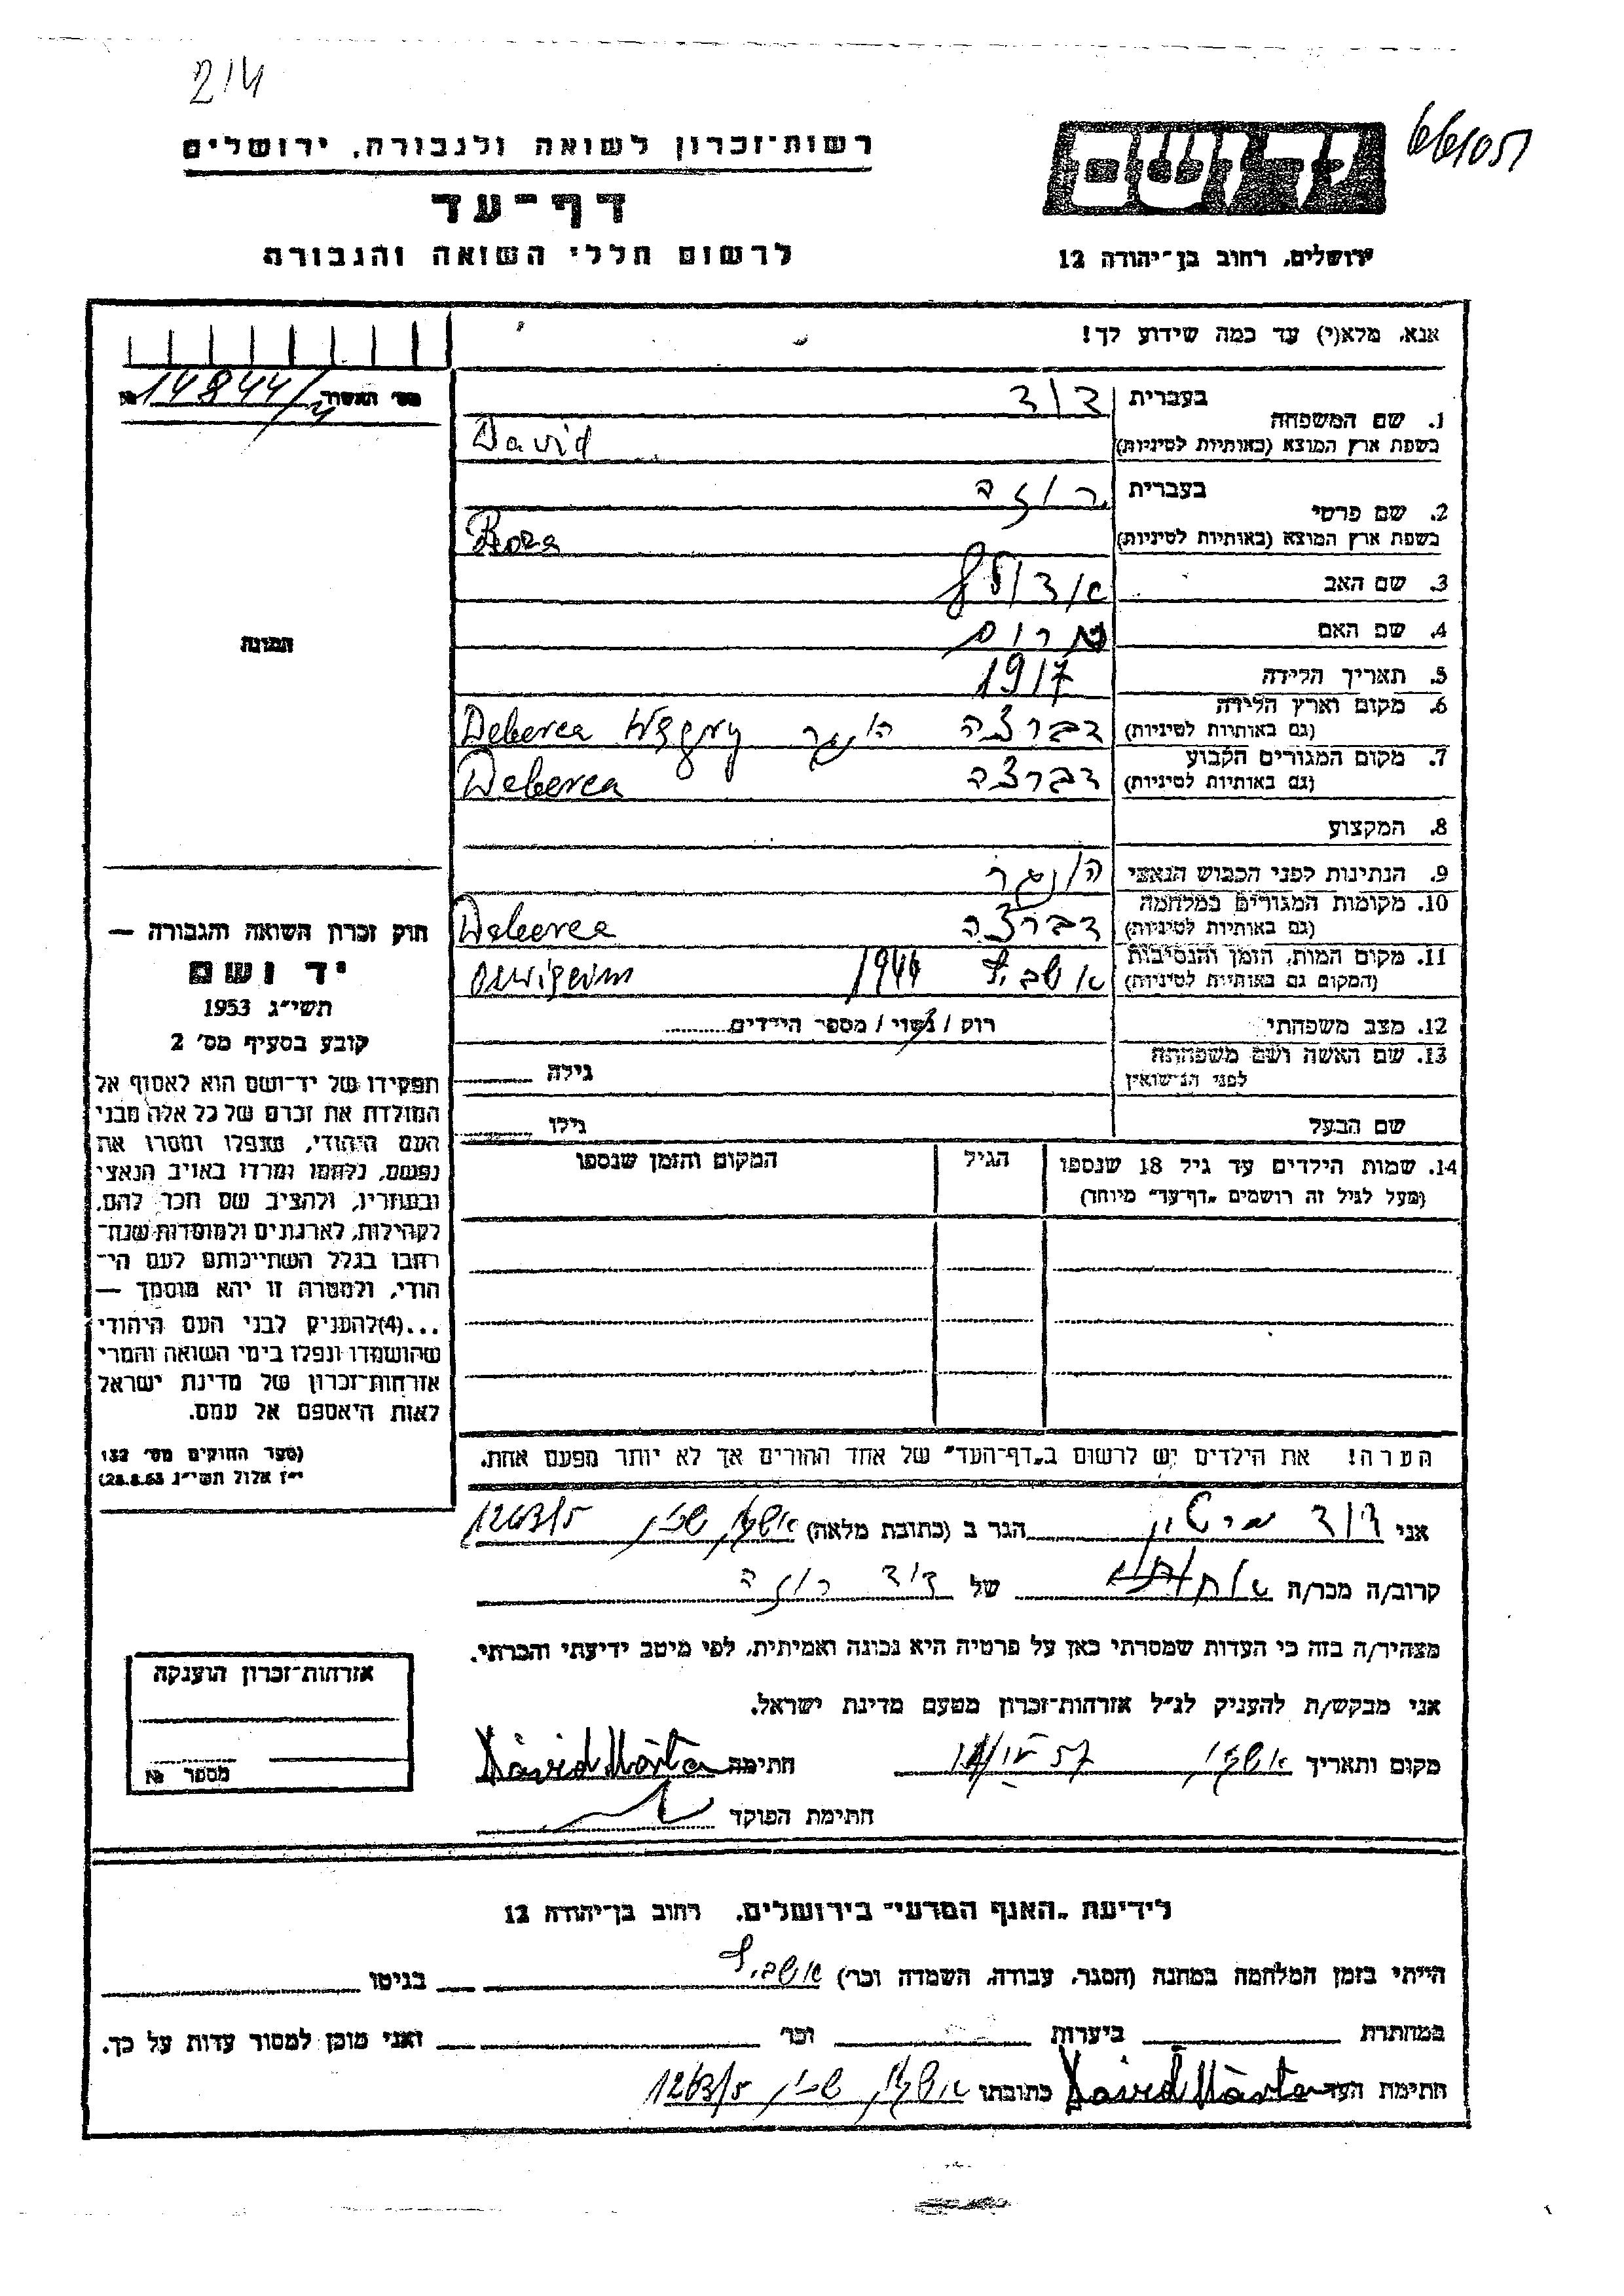 214
661051
רשות־זכרון לשואה ולגבורה, ירושלים
יד ושם
דף־עד
לרשום חללי השואה והגבורה
ירושלים, רחוב בן־יהודה 12
אנא, מלא(י) עד כמה שידוע לך!
מס' האשרור № 14844/
1. שם המשפחה
בעברית דוד
בשפת ארץ המוצא (באותיות לטיניות) David
2. שם פרטי
בעברית רוזה
בשפת ארץ המוצא (באותיות לטיניות) Roza
3. שם האב אדולף
4. שם האם
5. תאריך הלידה 1917
6. מקום וארץ הלידה
(גם באותיות לטיניות) דברצה הונגר Deberea
7. מקום המגורים הקבוע
(גם באותיות לטיניות) דברצה Deberea
8. המקצוע
9. הנתינות לפני הכבוש הנאצי הונגר
10. מקומות המגורים במלחמה
(גם באותיות לטיניות) דברצה Deberea
11. מקום המות, הזמן והנסיבות
(המקום גם באותיות לטיניות) אושביץ 1944
12. מצב משפחתי רוק / נשוי / מספר הילדים
13. שם האשה ושם משפחתה
לפני הנישואין גילה
שם הבעל גילו
14. שמות הילדים עד גיל 18 שנספו הגיל המקום והזמן שנספו
(מעל לגיל זה רושמים „דף־עד" מיוחד)
הערה! את הילדים יש לרשום ב„דף־העד" של אחד ההורים אך לא יותר מפעם אחת.
התמונה
חוק זכרון השואה והגבורה —
יד ושם
תשי"ג 1953
קובע בסעיף מס' 2
תפקידו של יד־ושם הוא לאסוף אל
המולדת את זכרם של כל אלה מבני
העם היהודי, שנפלו ומסרו את
נפשם, נלחמו ומרדו באויב הנאצי
ובעוזריו, ולהציב שם וזכר להם,
לקהילות, לארגונים ולמוסדות שנח־
רבו בגלל השתייכותם לעם הי־
הודי, ולמטרה זו יהא מוסמך —
...(4)להעניק לבני העם היהודי
שהושמדו ונפלו בימי השואה והמרי
אזרחות־זכרון של מדינת ישראל
לאות היאספם אל עמם.
(ספר החוקים מס' 132
י"ז אלול תשי"ג 28.8.53)
אני דוד הגר ב (כתובת מלאה) אשקלון 1263/5
קרוב/ה מכר/ה של דוד רוזה
מצהיר/ה בזה כי העדות שמסרתי כאן על פרטיה היא נכונה ואמיתית, לפי מיטב ידיעתי והכרתי.
אני מבקש/ת להעניק לנ"ל אזרחות־זכרון מטעם מדינת ישראל.
מקום ותאריך אשקלון חתימה Dávid Márta
חתימת הפוקד
אזרחות־זכרון הוענקה
מספר №
לידיעת „האגף המדעי" בירושלים, רחוב בן־יהודה 12
הייתי בזמן המלחמה במחנה (הסגר, עבודה, השמדה וכר') אושביץ בגיטו
במחתרת ביערות וכר' ואני מוכן למסור עדות על כך.
חתימת העד Dávid Márta כתובתו אשקלון 1263/5